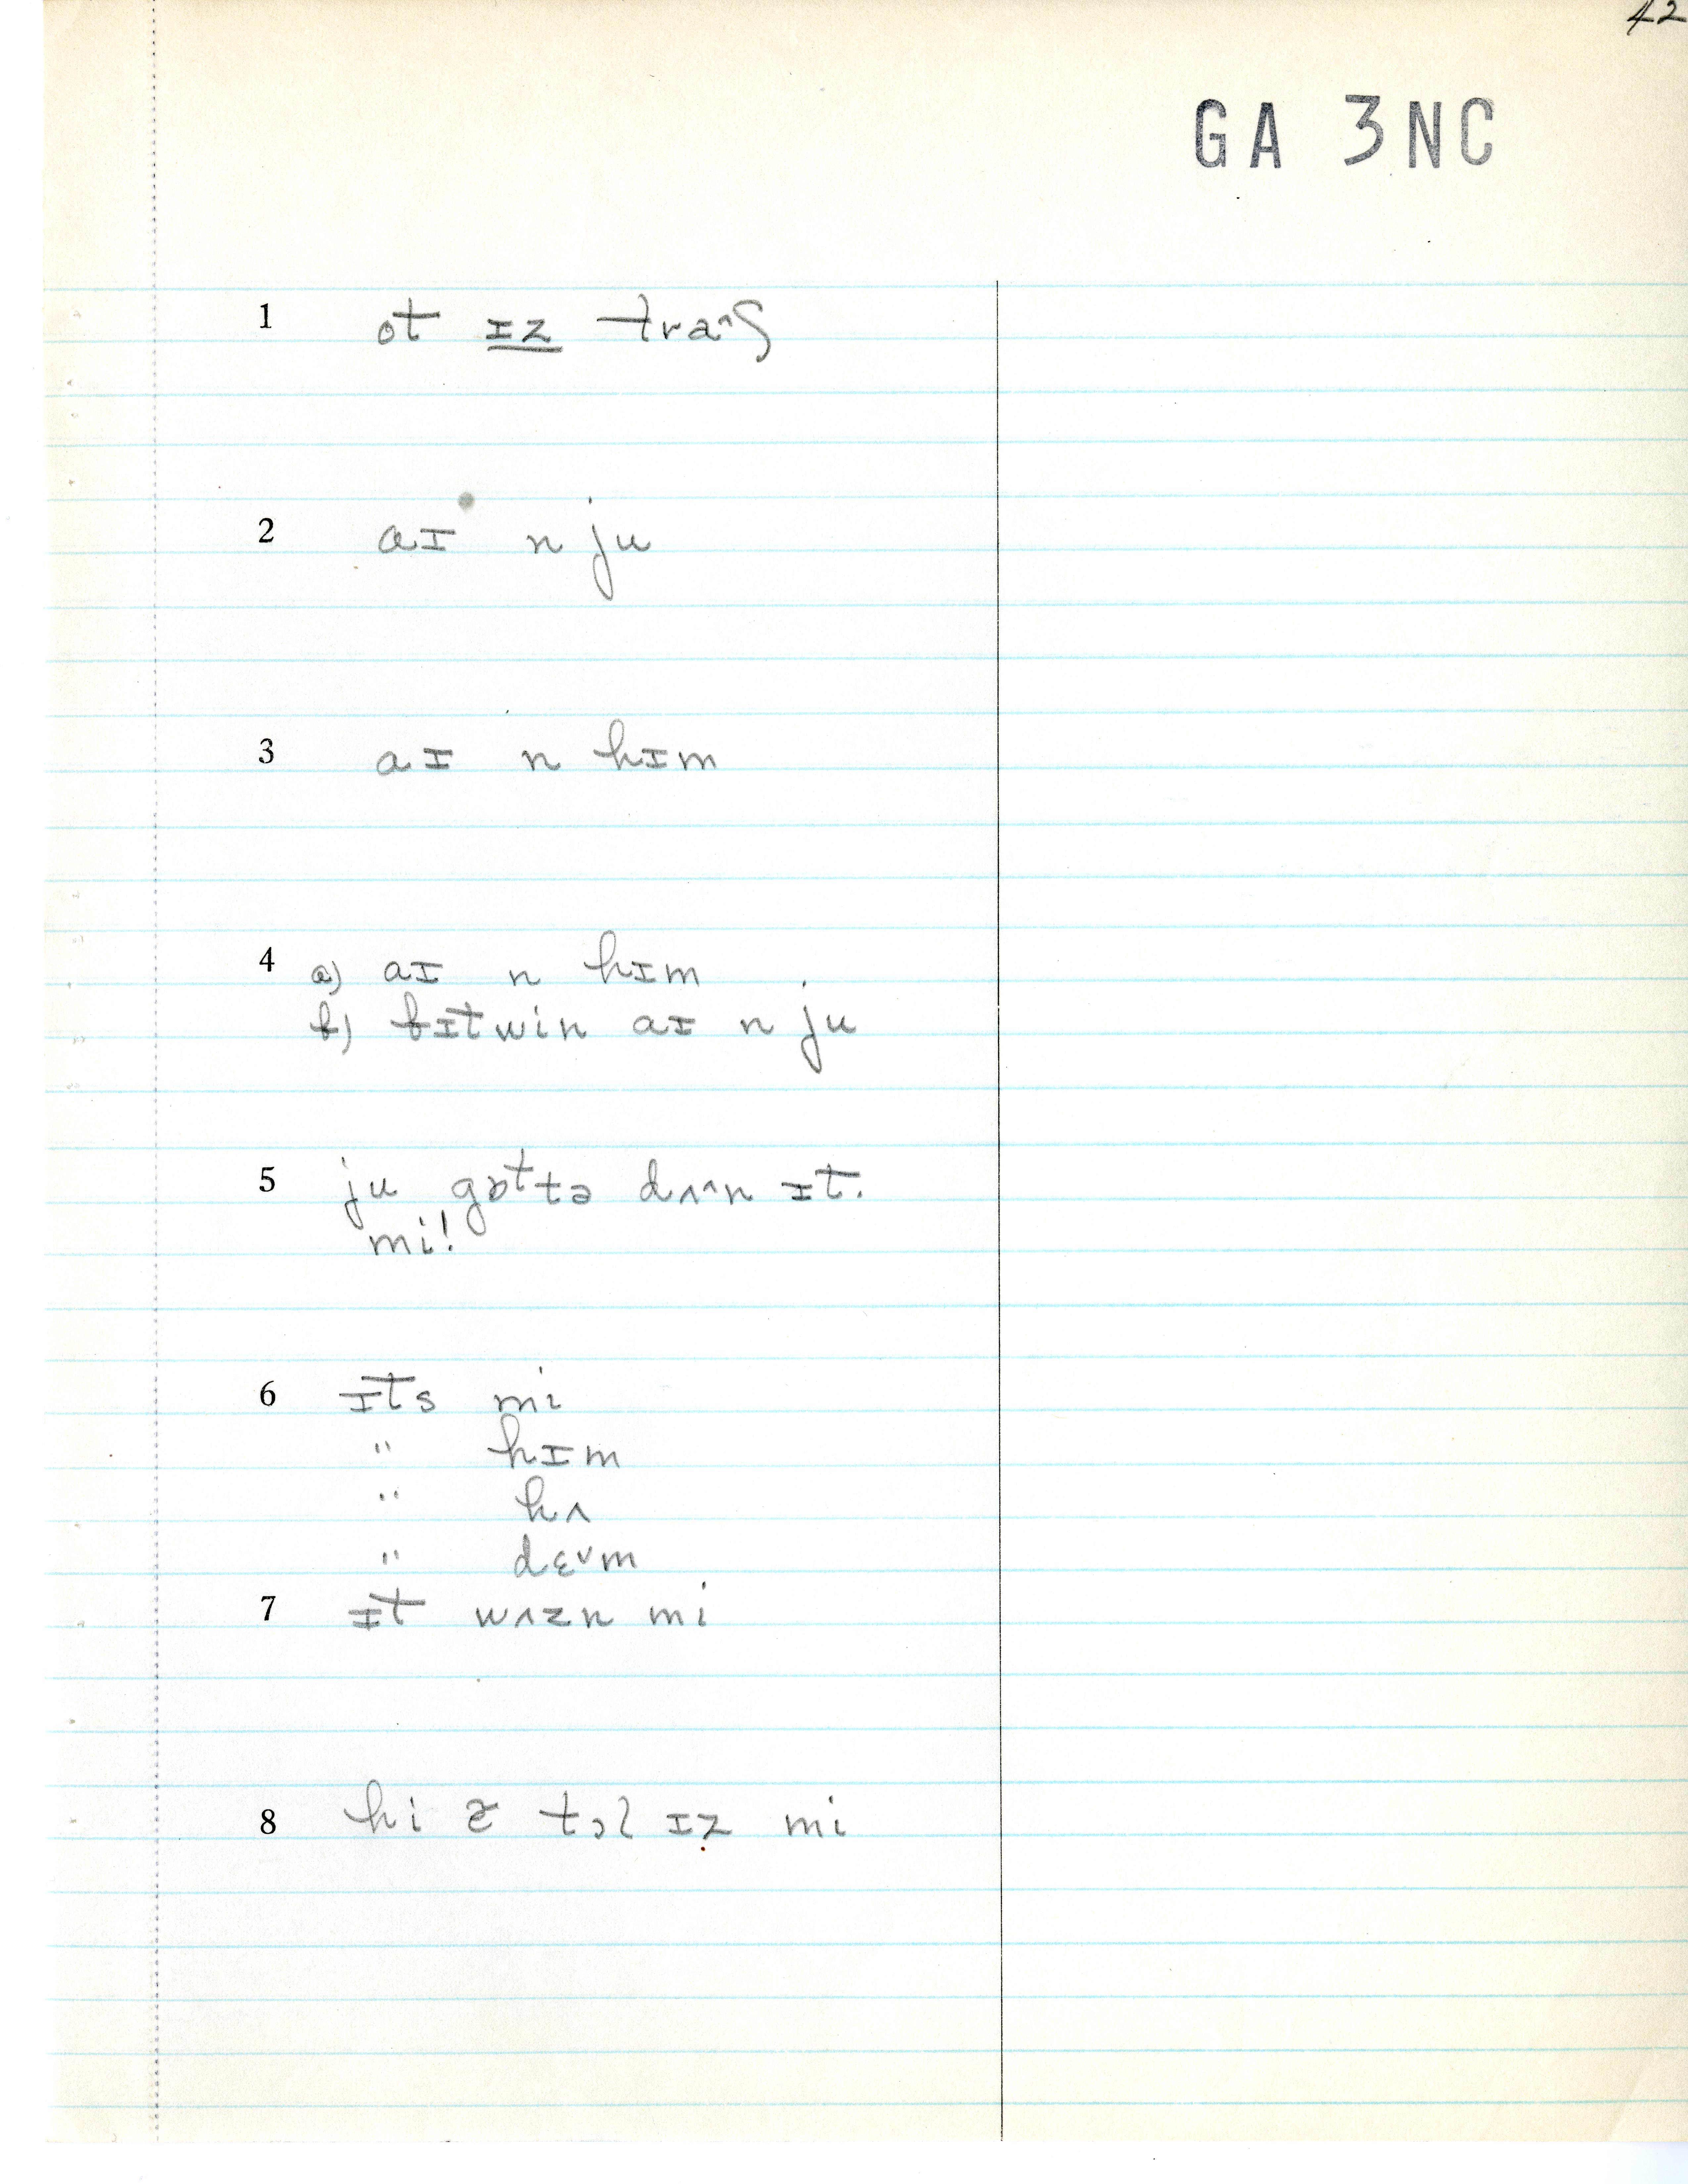 42
GA 3NC
1 ot ɪz traʌʃ
2 aɪ n ju
3 aɪ n hɪm
4 a) aɪ n hɪm
b) bɪtwin aɪ n ju
5 ju gɒttə dʌ^n ɪt.
mi!
6 ɪts mi
" hɪm
" hʌ
" dɛᵛm
7 ɪt wʌzn mi
8 hi tɔl ɪz mi